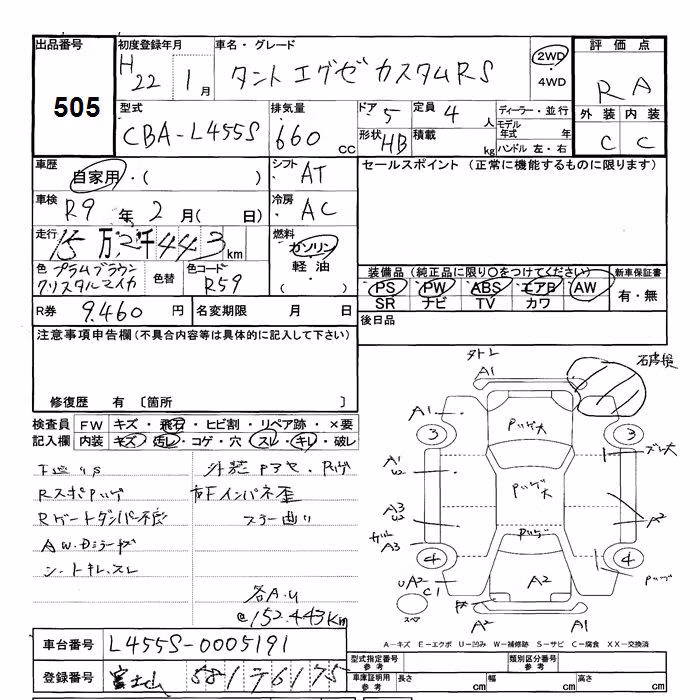 出品番号 初度登録年月 車名・グレード 評価点
505
H22 1月 タントエグゼカスタムRS 2WD・4WD RA
型式 排気量 ドア 5 定員 4人 ディーラー・並行 外装 内装
CBA-L455S 660cc 形状 HB 積載 kg モデル年式 年 ハンドル 左・右 C C
車歴 自家用・( ) シフト AT セールスポイント (正常に機能するものに限ります)
車検 R9年 2月( 日) 冷房 AC
走行 15万2千443km 燃料 ガソリン・軽油・( )
色 プラムブラウンクリスタルマイカ 色替 色コード R59
装備品 (純正品に限り○をつけてください) 新車保証書
PS PW ABS エアB AW 有・無
SR ナビ TV カワ
R券 9,460円 名変期限 月 日 後日品
注意事項申告欄(不具合内容等は具体的に記入して下さい)
修復歴 有 〔箇所 〕
検査員 FW キズ・飛石・ヒビ割・リペア跡・×要
記入欄 内装 キズ・汚レ・コゲ・穴・スレ・キレ・破レ
下廻りS
シートキレ、スレ
各A.U
@152.443Km
A1
A1
3
3
A1
A3
A2
A3
4
4
UA2
C1
A2
A2
A1
スペア
A-キズ E-エクボ U-凹み W-補修跡 S-サビ C-腐食 XX-交換済
車台番号 L455S-0005191
登録番号 富士山 581 76175
型式指定番号 参考 類別区分番号 参考
車庫証明用 参考 長さ cm 幅 cm 高さ cm